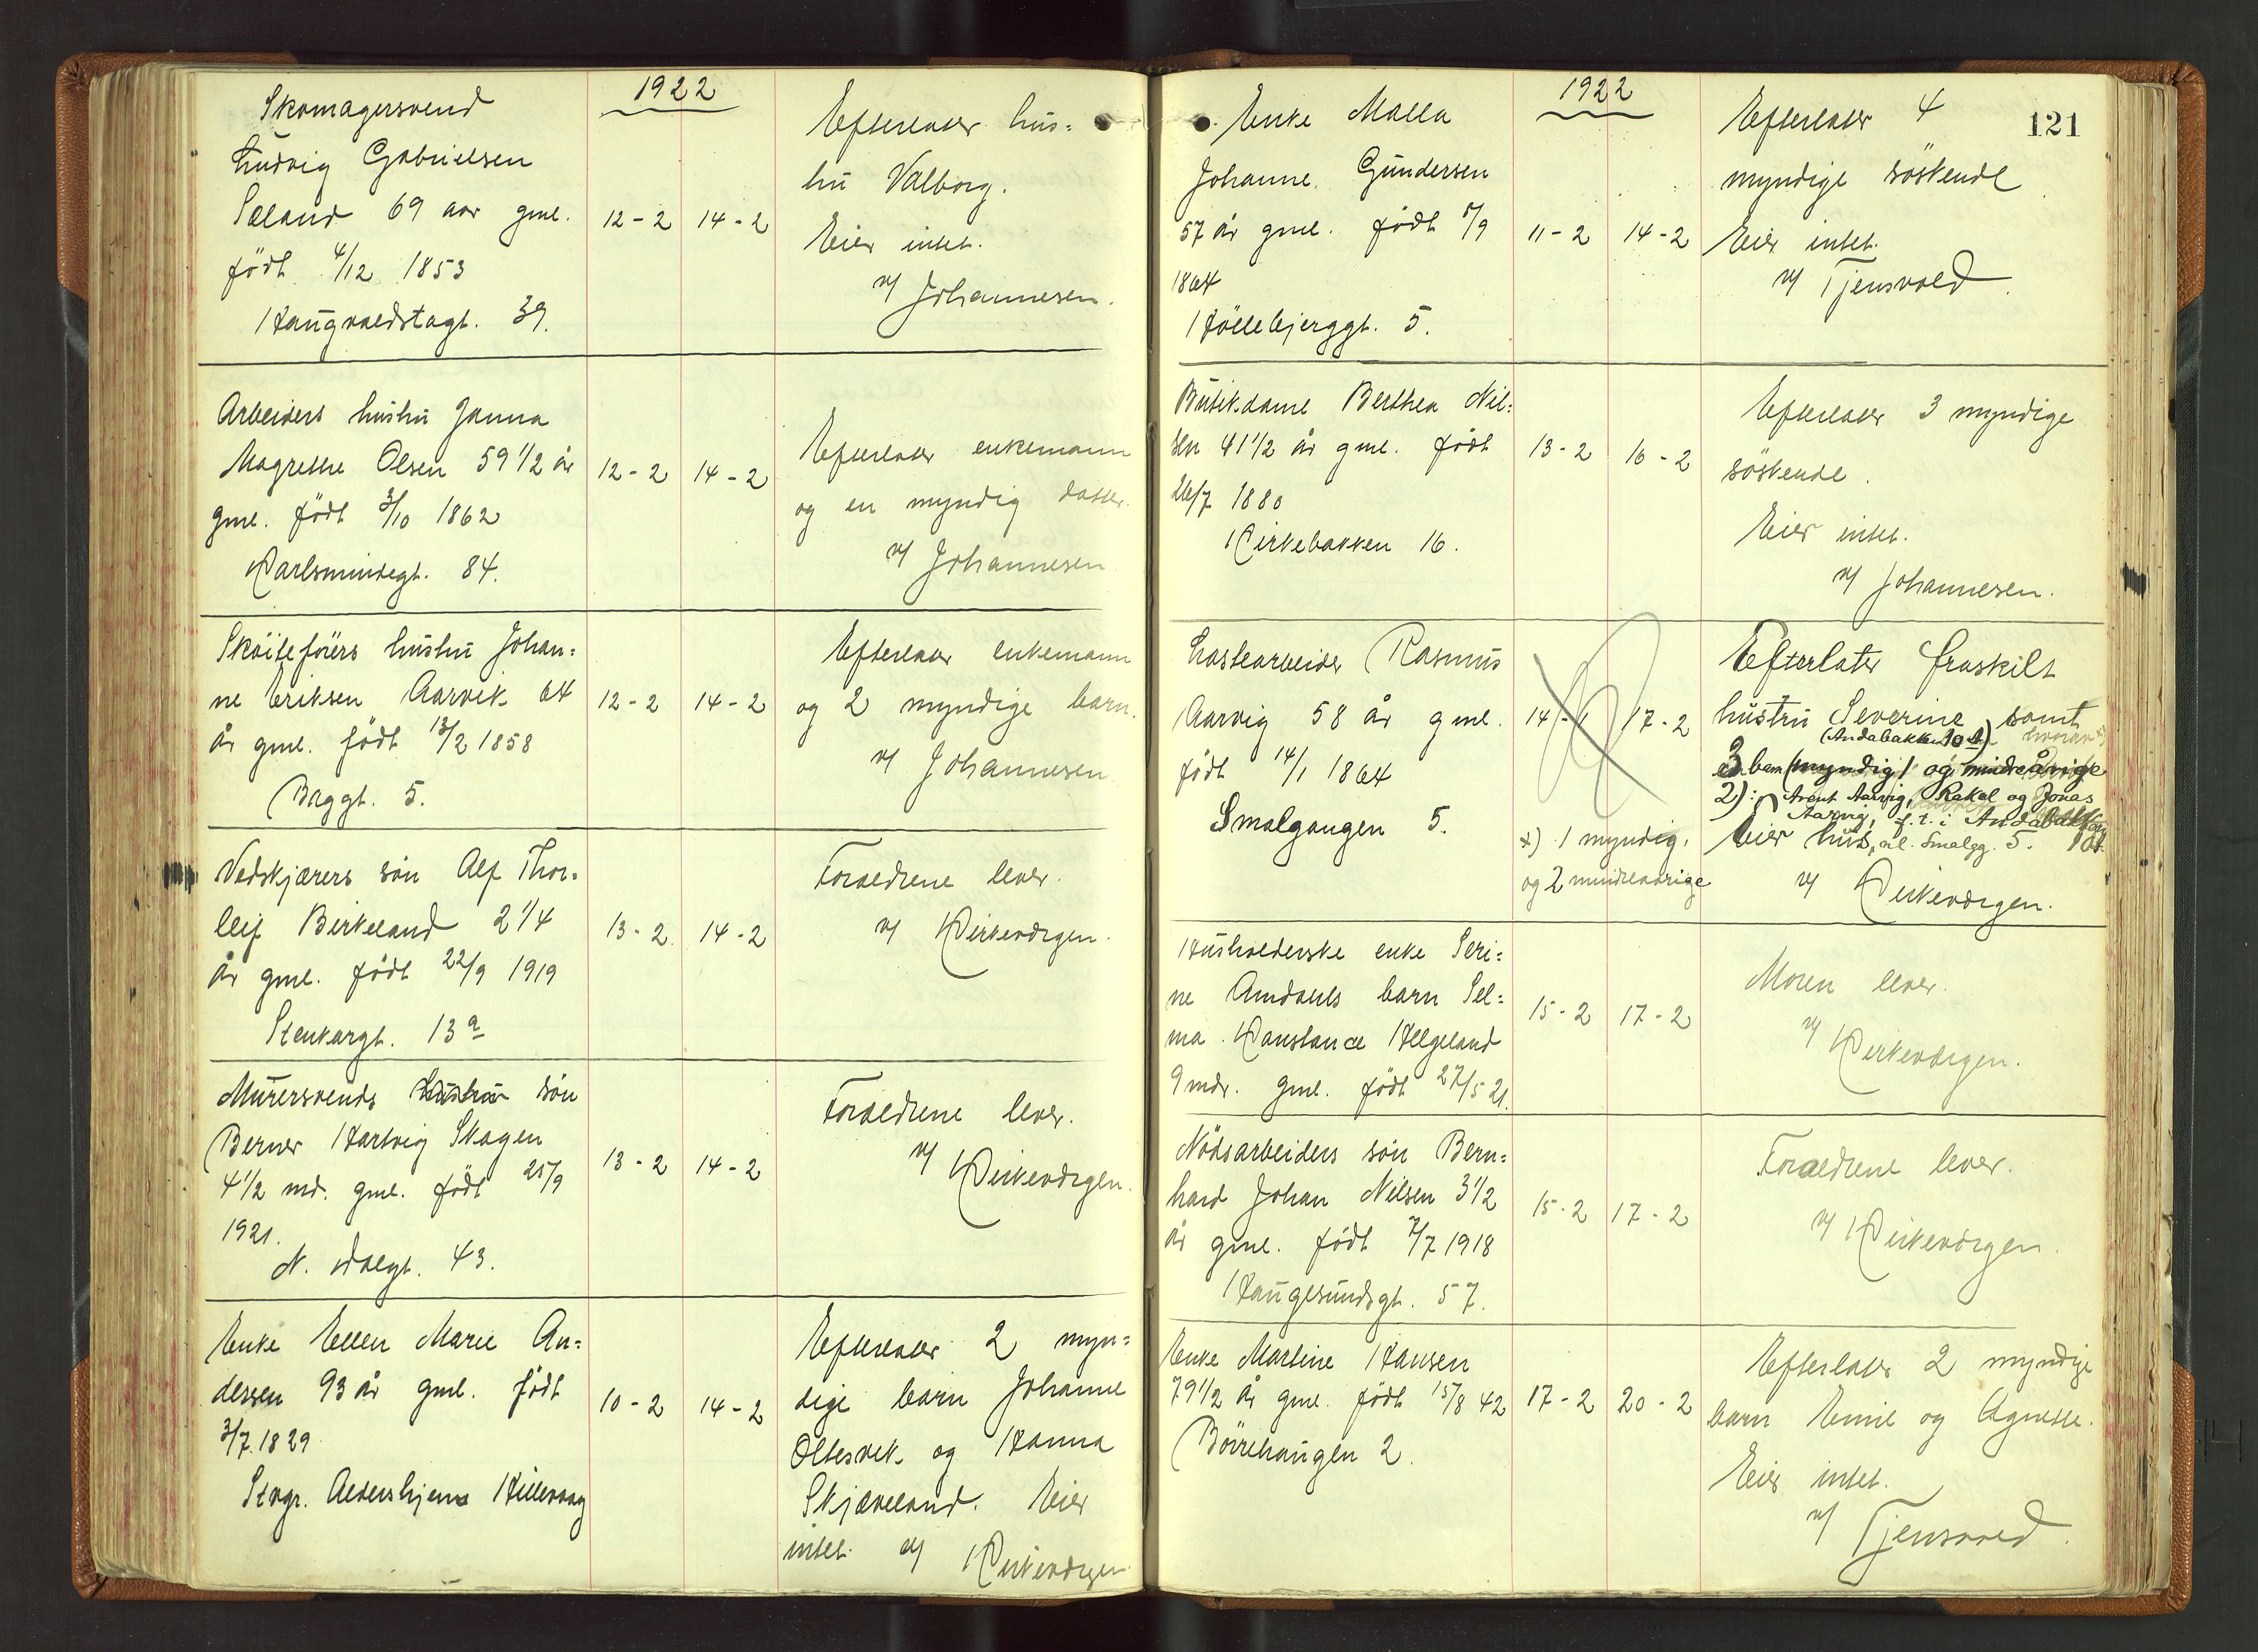 1922
Skomagersvend
Ludvig Gabrielsen
Sæland 69 aar gml.
født 4/12 1853
Haugvaldstagt. 39.
12-2 14-2
Efterlater hus=
tru Valborg.
Eier intet.
v/ Johannesen.
Arbeiders hustru Janna
Magrethe Olsen 59 1/2 år
gml. født 3/10 1862
Karlsmindegt. 84.
12-2 14-2
Efterlater enkemann
og en myndig datter.
v/ Johannesen
Skøiteførers hustru Johan=
ne Eriksen Aarvik 64
år gml. født 13/2 1858
Baggt. 5.
12-2 14-2
Efterlater enkemann
og 2 myndige barn.
v/ Johannesen
Vedskjærers søn Alf Thor=
leif Birkeland 2 1/4
år gml. født 22/9 1919
Stenkargt. 13a
13-2 14-2
Forældrene lever.
v/ Kirkeværgen.
Murersvends hustru søn
Berner Hartvig Skagen
4 1/2 md. gml. født 25/9
1921.
N. Dalgt. 43.
13-2 14-2
Forældrene lever.
v/ Kirkeværgen.
Enke Ellen Marie An=
dersen 93 år gml. født
3/7 1829
Stvgr. Aldershjem Hillevaag
10-2 14-2
Efterlater 2 myn=
dige barn Johanne
Oltesvik og Hanna
Skjæveland. Eier
intet. v/ Kirkeværgen
1922
121
Enke Malla
Johanne Gundersen
57 år gml. født /9
1864
Høllebjerggt. 5.
11-2 14-2
Efterlater 4
myndige søskende
Eier intet.
v/ Tjensvold.
Butikdame Berthea Nil=
sen 41 1/2 år gml. født
26/7 1880
Kirkebakken 16.
13-2 16-2
Efterlater 3 myndige
søskende.
Eier intet.
v/ Johannesen.
Lastearbeider Rasmus
Aarvig 58 år gml.
født 14/1 1864
Smalgangen 5.
14-1 17-2
x) 1 myndig.
og 2 mindreaarige
Efterlater fraskilt
hustru Severine samt
(Andabakken 10 A) hvorav x)
3 barn (myndig) og mindreårige
2): Arent Aarvig, Rakel og Jonas
Aarvig, f.t. i Andabakken
Eier hus, al. Smalgg. 5. 10A.
v/ Kirkeværgen.
Husholderske enke Seri=
ne Amdahls barn Sel=
ma Konstance Helgeland
9 mdr. gml. født 27/5 21.
15-2 17-2
Moren lever.
v/ Kirkeværgen.
Nødsarbeiders søn Bern=
hard Johan Nilsen 3 1/2
år gml. født 7/7 1918
Haugesundsgt. 57.
15-2 17-2
Forældrene lever.
v/ Kirkeværgen.
Enke Martine Hansen
79 1/2 år gml. født 15/8 42
Børrehaugen 2.
17-2 20-2
Efterlater 2 myndige
barn Emil og Agnethe.
Eier intet.
v/ Tjensvold